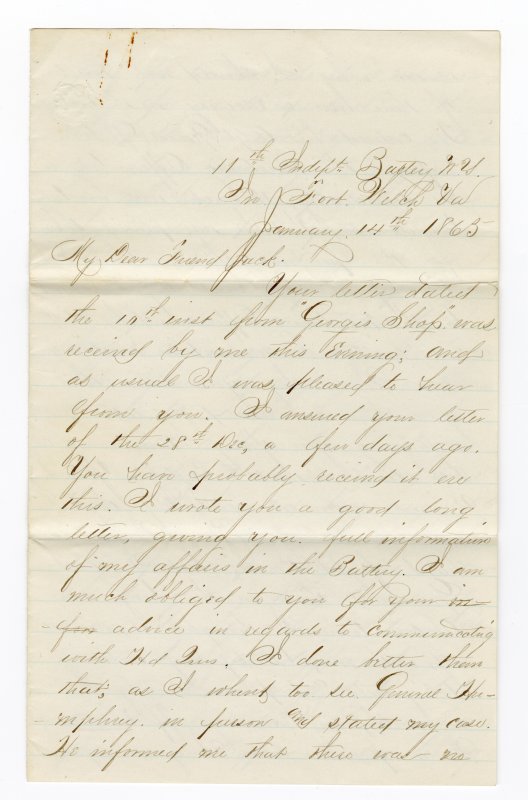 11th Indept. Battery N.Y.
Fort Welch Va
January 14th 1865
My Dear Friend Jack.
Your letter dated
the 10th inst from "Georgis Shop" was
received by me this Evening; and
as usual I was pleased to hear
from you. I answered your letter
of the 28th Dec, a few days ago.
You have probably received it ere
this. I wrote you a good long
letter, giving you full information
of my affairs in the Battery. I am
much obliged to you for your in-
for advice in regards to communicating
with Hd Qrs. I done better then
that, as I whent too see General Hu-
mphrey in person and stated my case.
He informed me that there was no